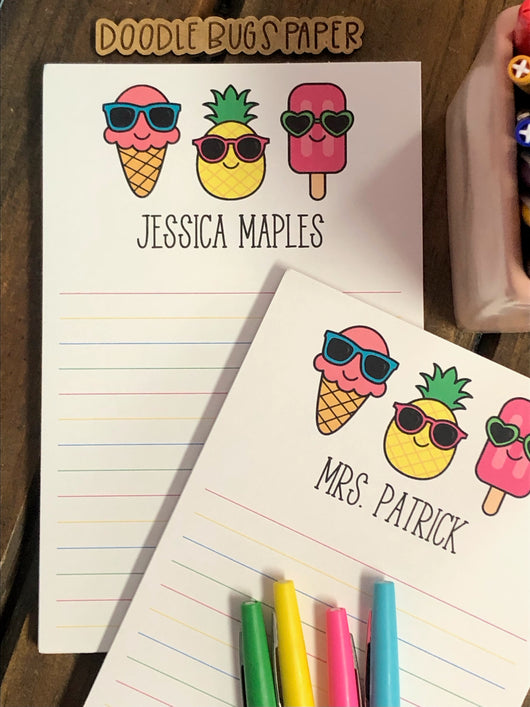 DOODLE BUGS PAPER
JESSICA MAPLES
MRS. PATRICK